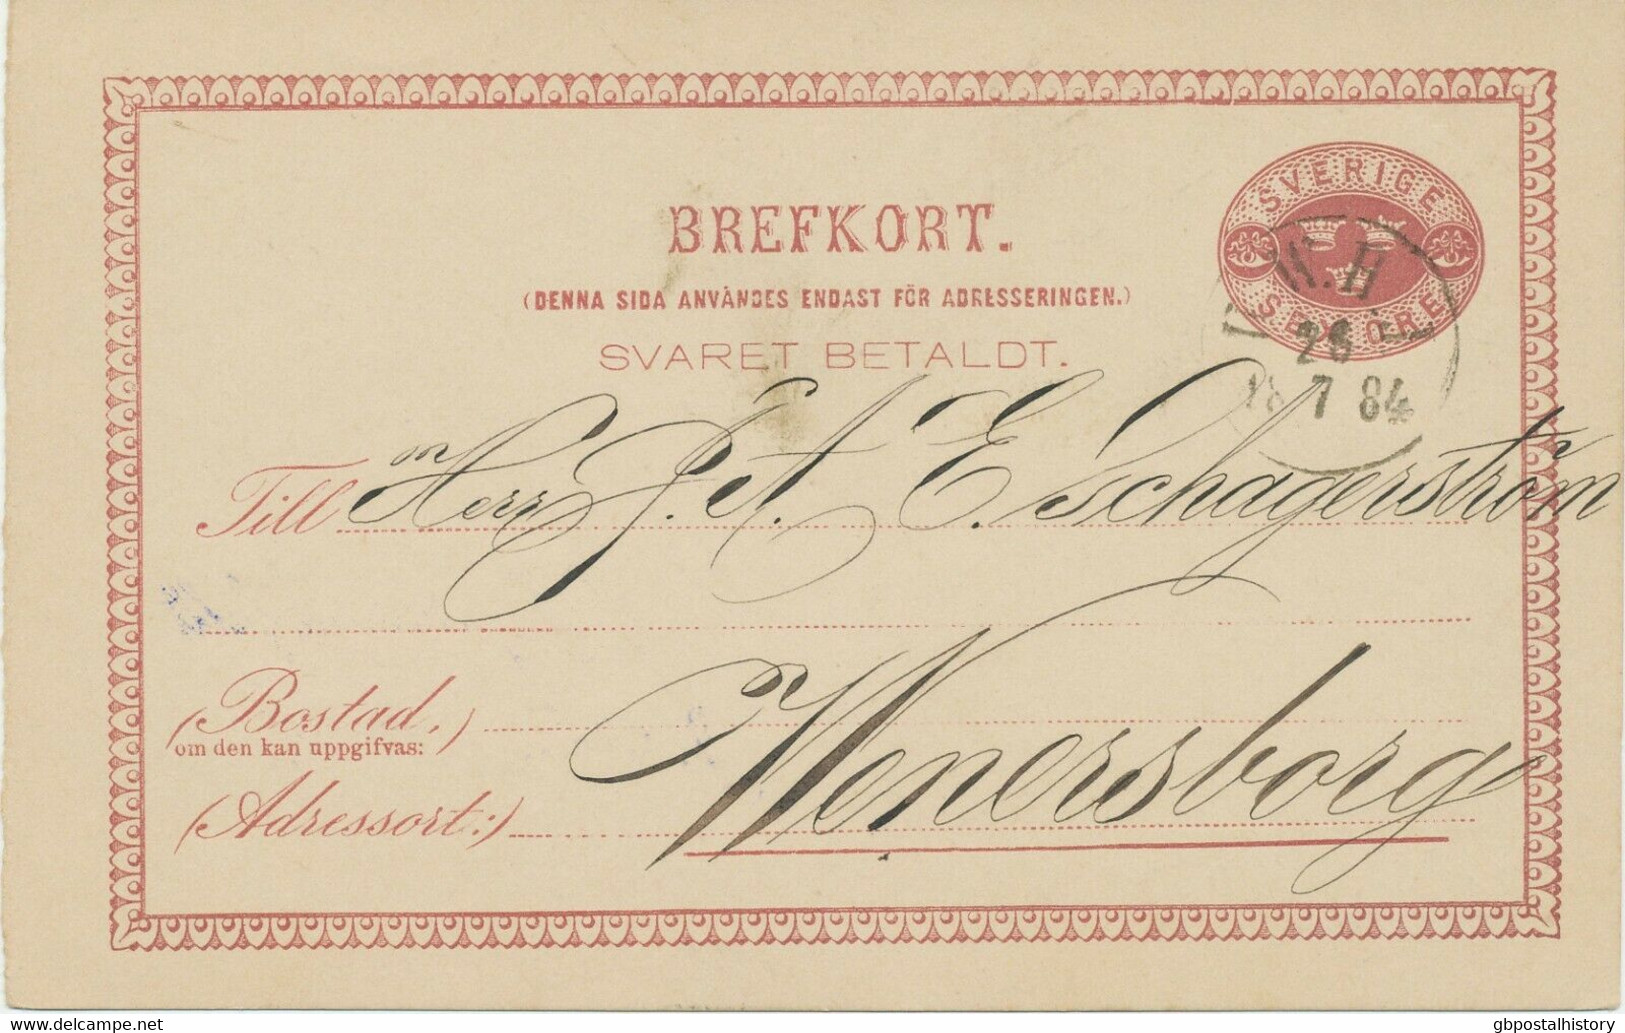 SVERIGE
SEX ÖRE
BREFKORT.
(DENNA SIDA ANVÄNDES ENDAST FÖR ADRESSERINGEN.)
SVARET BETALDT.
26
18 7 84
Till Herr J. A. E. Schagerström
(Bostad,)
om den kan uppgifvas:
(Adressort:) Wenersborg
www.delcampe.net
gbpostalhistory